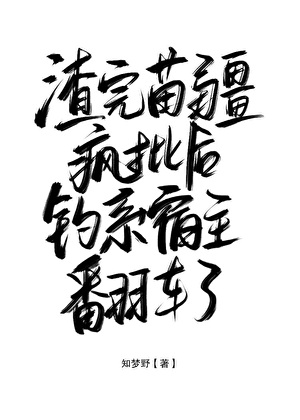 渣完苗疆
疯批后
钓系宿主
翻车了
知梦野【著】